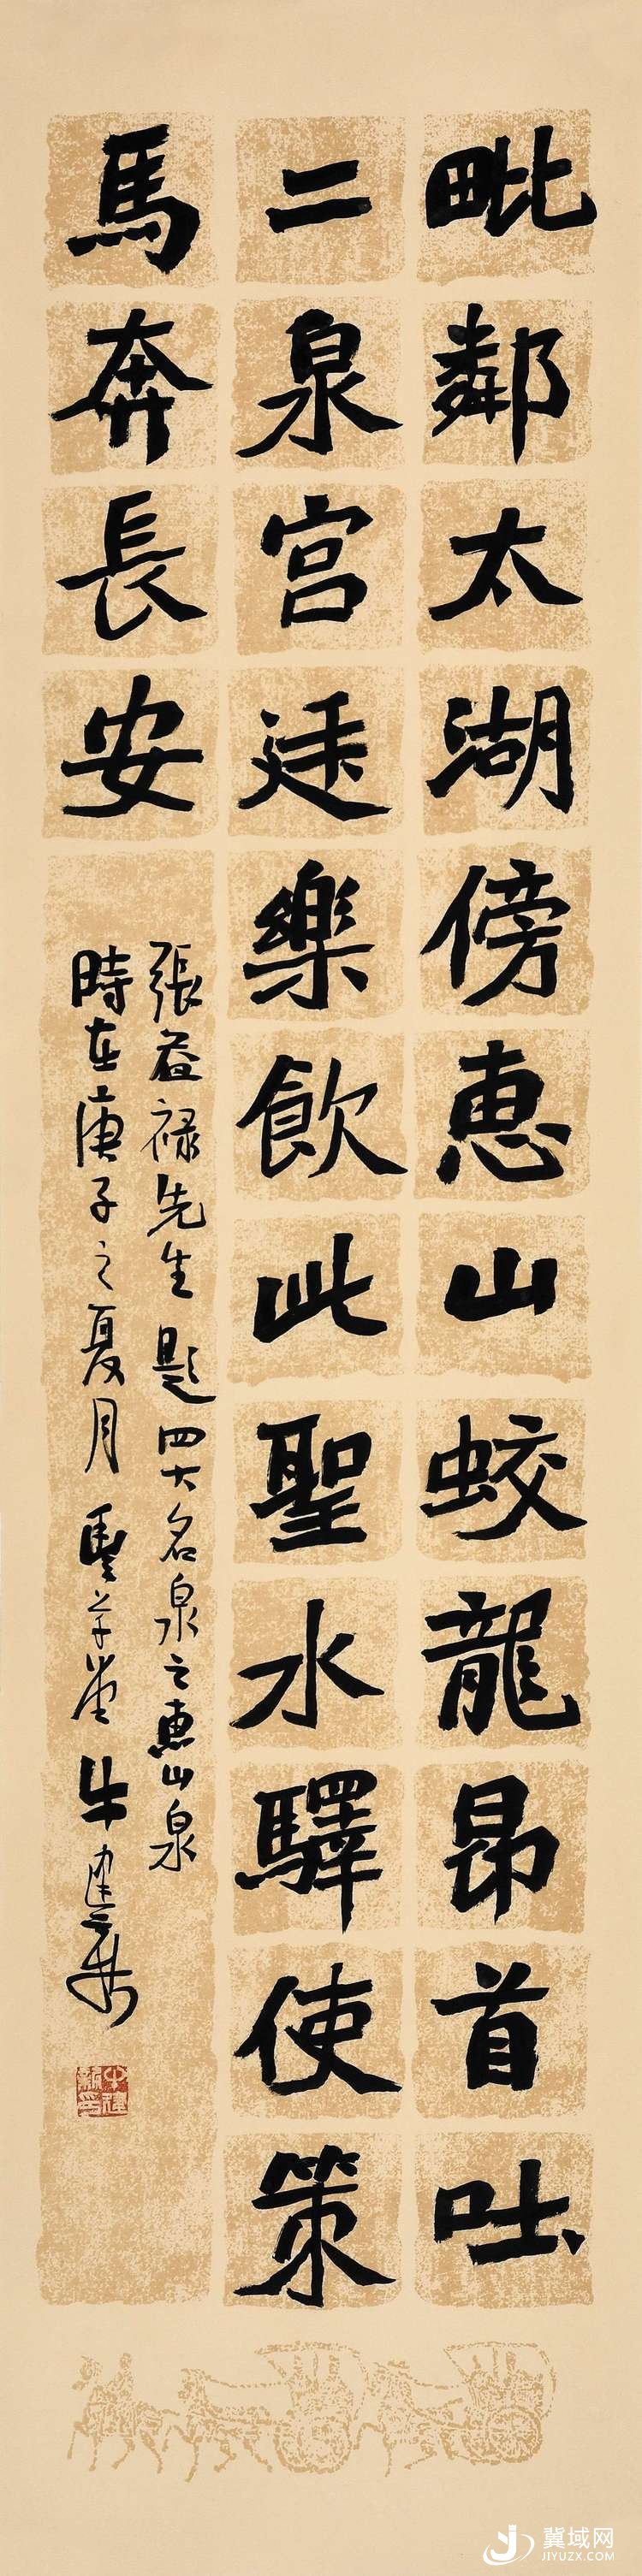 毗鄰太湖傍惠山蛟龍昂首吐
二泉宫廷樂飲此聖水驛使策
馬奔長安
張益禄先生題四大名泉之惠山泉
時在庚子之夏月
牛建
冀域网
JIYUZX.COM